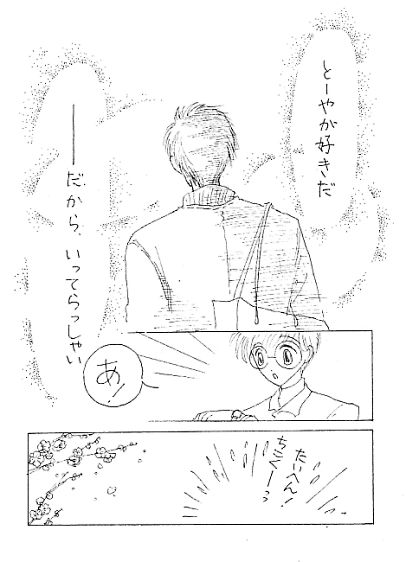 とーやが好きだ
――だから、いってらっしゃい
あ!
たいへん!
ちこくーっ